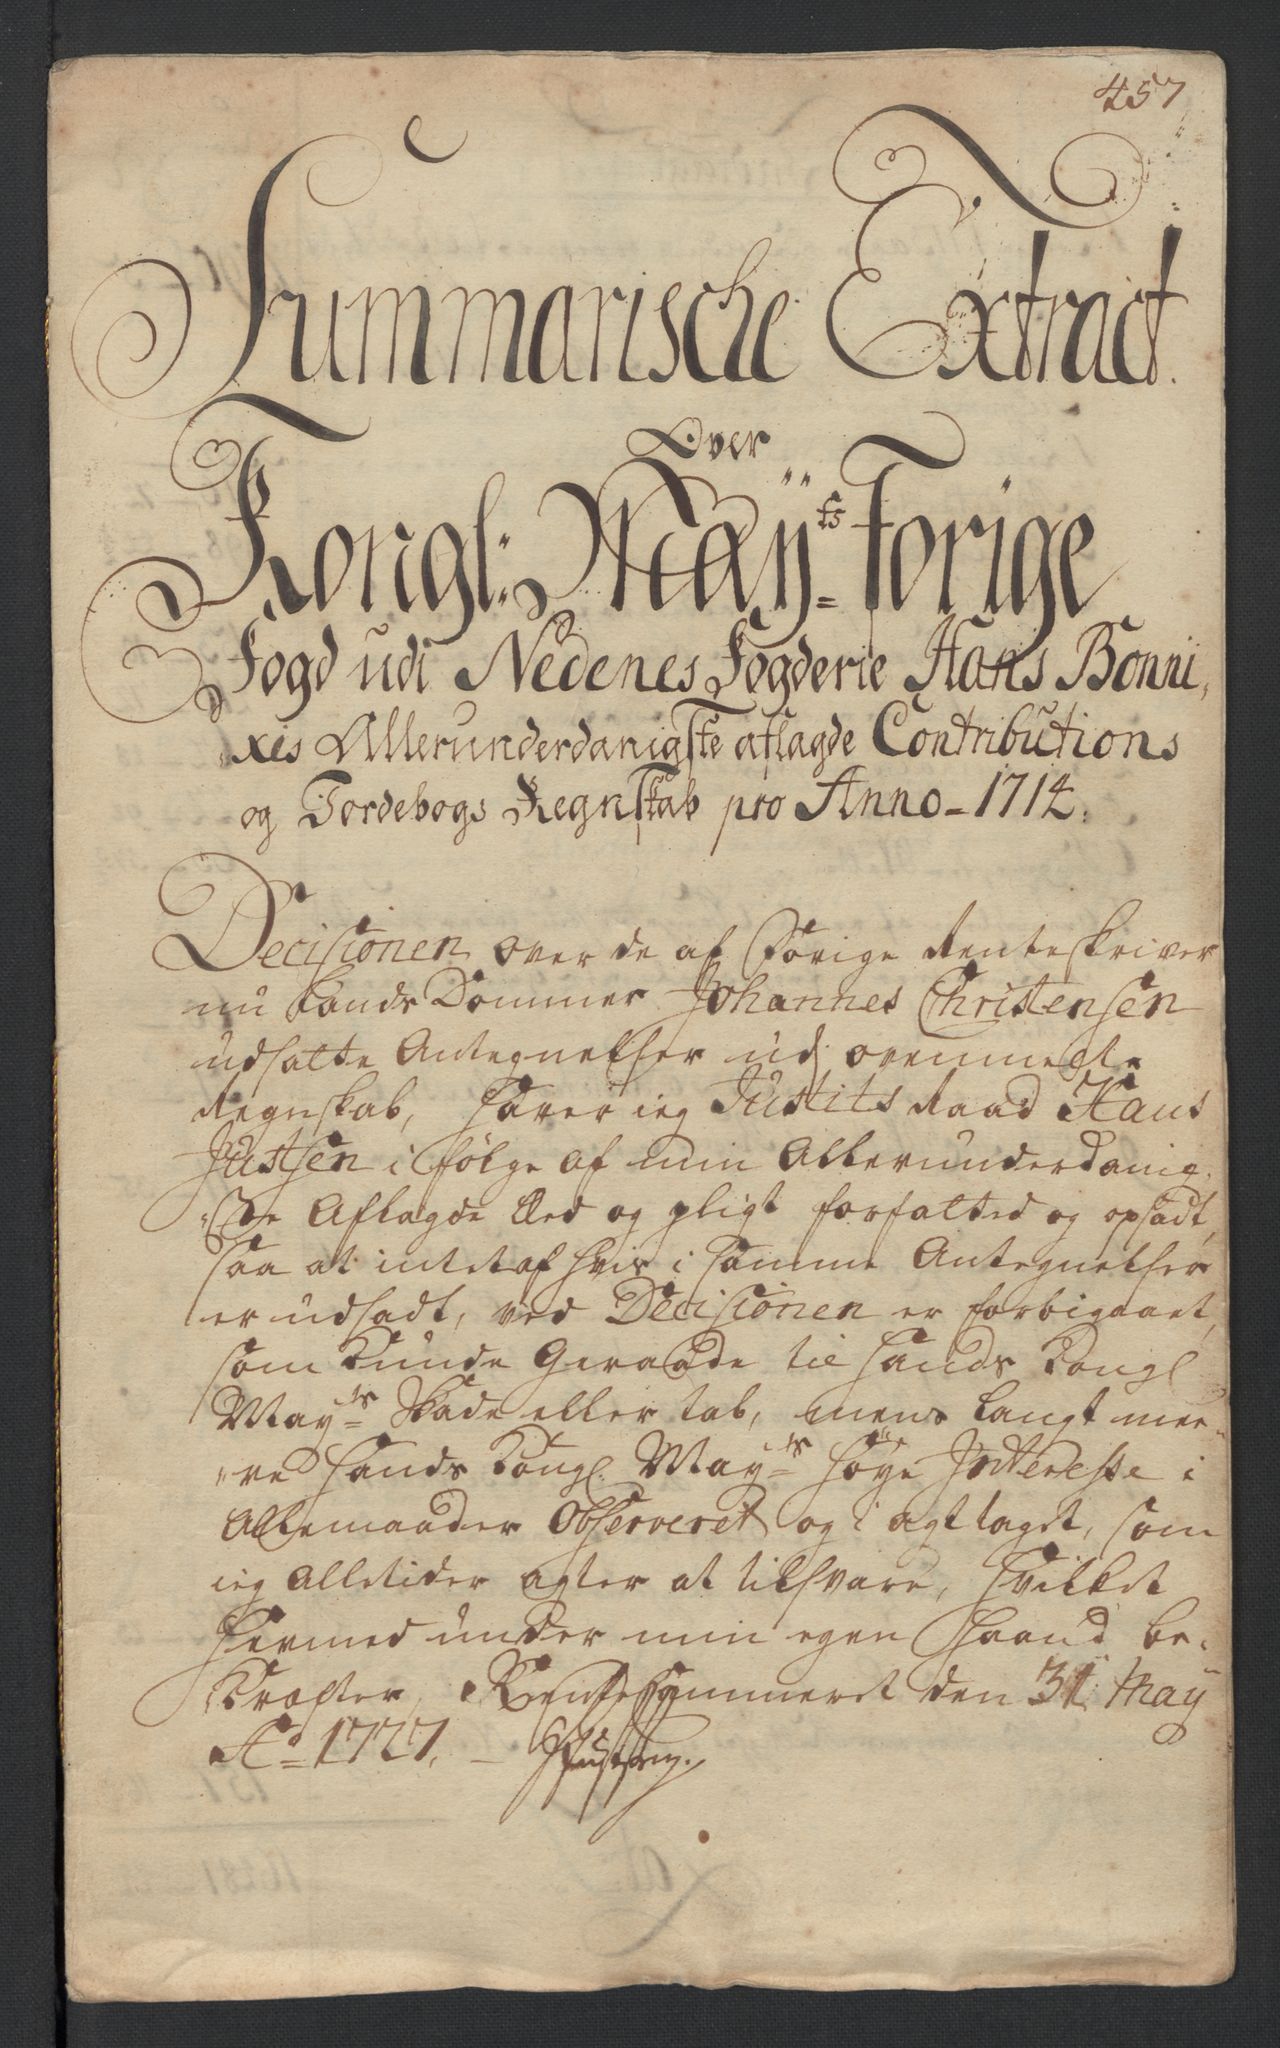 457
Summarische Extract
Over
Kongl: Mayts Forige
Fogd udi Nedenes Fogderie Hans Bonni,
xis Allerunderdanigste aflagde Contributions
og Jordebogs Regnskab pro Anno 1714.
Decisionen over de af Forige Renteskriver
nu Lands Dommer Johannes Christensen
udsatte Antegnelser udj ovenmelte
Regnskab, haver ieg Justits Raad Hans
Justsen i følge af min Allerunderdanig,
ste Aflagde Eed og pligt forfatted og opsadt,
saa at intet af hvis i samme Antegnelser
er udsadt, ved Decisionen er forbigaaet,
som kunde Geraade til hands Kongl
Mayts Skade eller tab, mens langt mee,
re hands Kongl. Mayts høye Interesse i
Allemaader Observeret og i agt taget, som
ieg Alletider agter at tilsvare, hvilket
hermed under min egen Haand be,
kræfter, Rentekammeret den 31 May
Ao 1727. HJustsen.